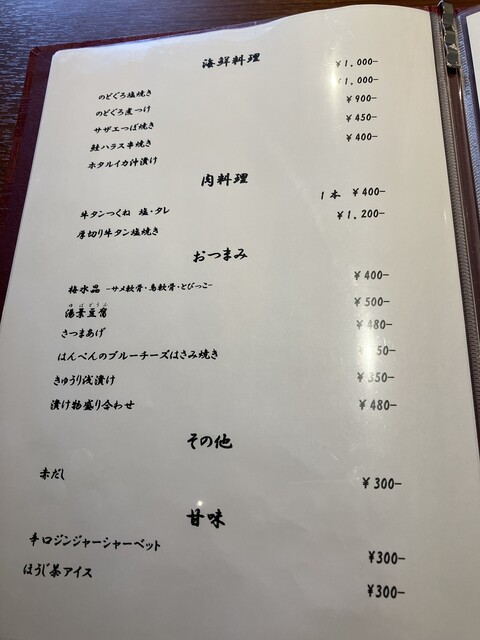 海鮮料理
のどぐろ塩焼き ￥1,000-
のどぐろ煮つけ ￥1,000-
サザエつぼ焼き ￥900-
鮭ハラス串焼き ￥450-
ホタルイカ沖漬け ￥400-
肉料理
牛タンつくね 塩・タレ 1本 ￥400-
厚切り牛タン塩焼き ￥1,200-
おつまみ
梅水晶 -サメ軟骨・鳥軟骨・とびっこ- ￥400-
ゆばどうふ
湯葉豆腐 ￥500-
さつまあげ ￥480-
はんぺんのブルーチーズはさみ焼き 50-
きゅうり浅漬け ￥350-
漬け物盛り合わせ ￥480-
その他
赤だし ￥300-
甘味
辛口ジンジャーシャーベット ￥300-
ほうじ茶アイス ￥300-